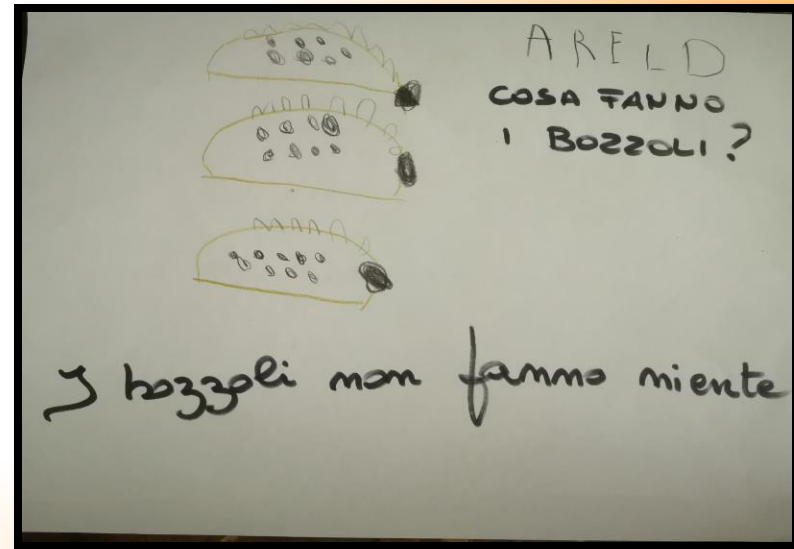 ARELD
COSA FANNO
I BOZZOLI?
I bozzoli non fanno niente